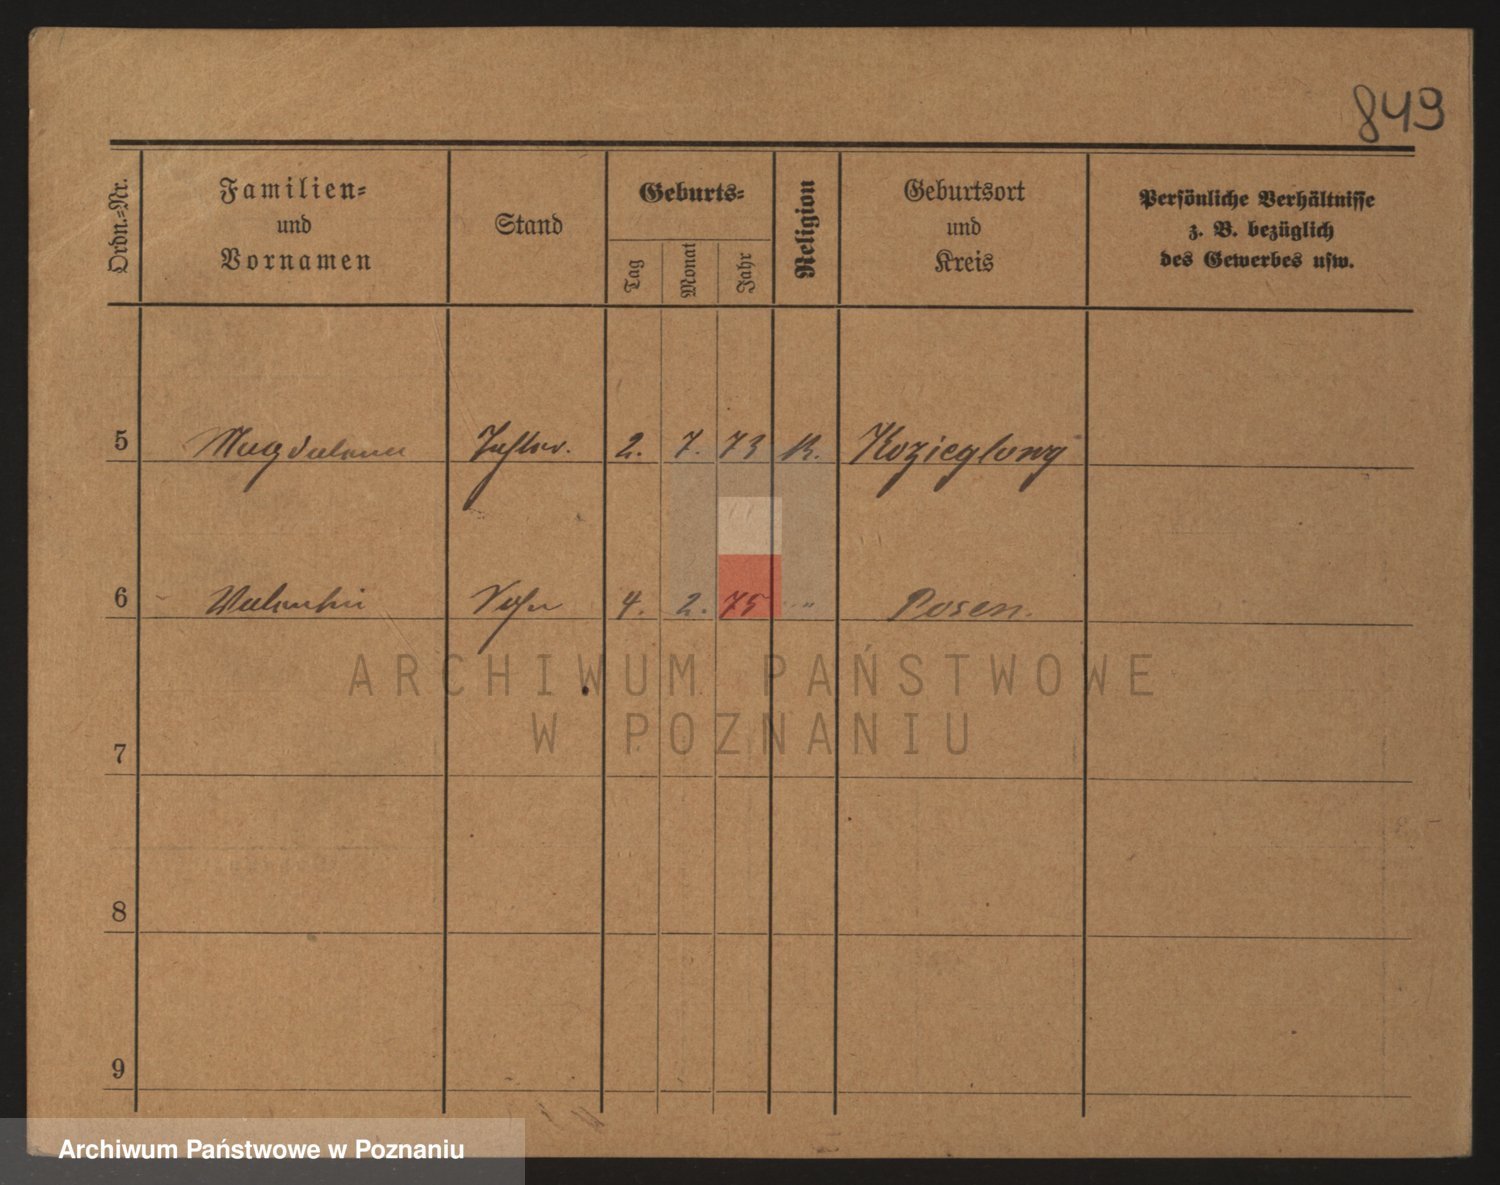 849
Ordn.-Nr.
Familien-
und
Vornamen
Stand
Geburts-
Tag
Monat
Jahr
Religion
Geburtsort
und
Kreis
Persönliche Verhältnisse
z. B. bezüglich
des Gewerbes usw.
5 Magdalena 2. 7. 73 K. Koziegłowy
6 Valentin Sohn 4. 2. 75 " Posen.
7
8
9
ARCHIWUM PAŃSTWOWE
W POZNANIU
Archiwum Państwowe w Poznaniu